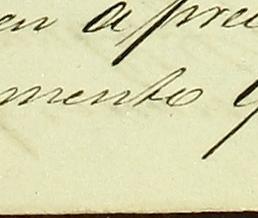 en apre
mento